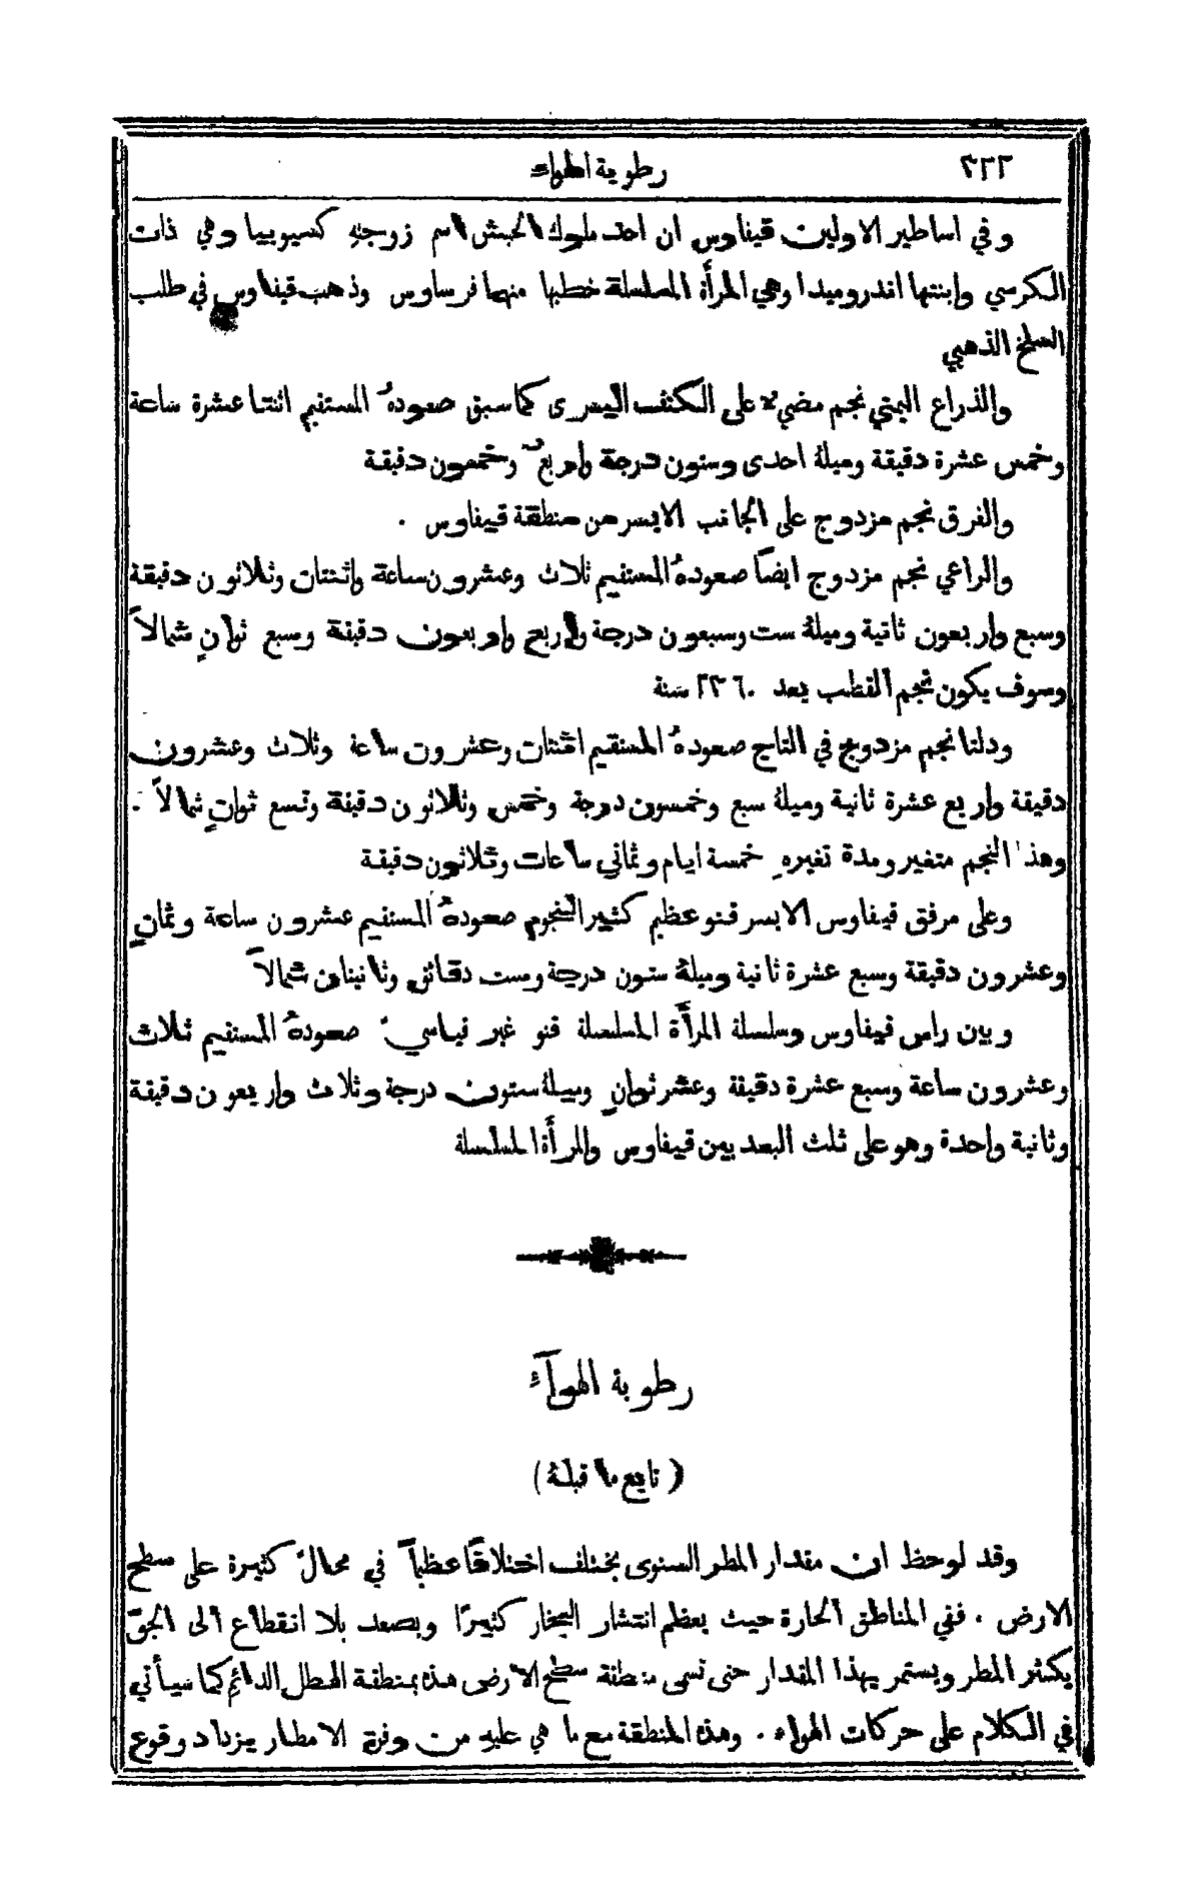 ٢٣٢ رطوبة الهواء
وفي اساطير الاولين قيفاوس ان احد ملوك الحبش اسم زوجتهِ كسيوبيا وهي ذات
الكرسي وابنتها اندروميدا وهي المرأة المسلسلة خطبها منهما فرساوس وذهب قيفاوس في طلب
السلخ الذهبي
والذراع اليمنى نجم مضيء على الكتف اليسرى كما سبق صعودهُ المستقيم اثنتا عشرة ساعة
وخمس عشرة دقيقة وميلهُ احدى وستون درجة واربعٌ وخمسون دقيقة
والفرق نجم مزدوج على الجانب الايسر من منطقة قيفاوس .
والراعي نجم مزدوج ايضاً صعودهُ المستقيم ثلاث وعشرون ساعة واثنتان وثلاثون دقيقة
وسبع واربعون ثانية وميلهُ ست وسبعون درجة واربع واربعون دقيقة وسبع ثوانٍ شمالاً
وسوف يكون نجم القطب بعد ٢٣٦٠ سنة
ودلتا نجم مزدوج في التاج صعودهُ المستقيم اثنتان وعشرون ساعة وثلاث وعشرون
دقيقة واربع عشرة ثانية وميلهُ سبع وخمسون درجة وخمس وثلاثون دقيقة وتسع ثوانٍ شمالاً .
وهذا النجم متغير ومدة تغيرهِ خمسة ايام وثماني ساعات وثلاثون دقيقة
وعلى مرفق قيفاوس الايسر قنو عظيم كثير النجوم صعودهُ المستقيم عشرون ساعة وثمانٍ
وعشرون دقيقة وسبع عشرة ثانية وميلهُ ستون درجة وست دقائق وثانيتان شمالاً
وبين راس قيفاوس وسلسلة المرأة المسلسلة قنو غير قياسيّ صعودهُ المستقيم ثلاث
وعشرون ساعة وسبع عشرة دقيقة وعشر ثوانٍ وميلهُ ستون درجة وثلاث واربعون دقيقة
وثانية واحدة وهو على ثلث البعد بين قيفاوس والمرأة المسلسلة
رطوبة الهوآء
(تابع ما قبلهُ)
وقد لوحظ ان مقدار المطر السنوي يختلف اختلافًا عظيماً في محالّ كثيرة على سطح
الارض . ففي المناطق الحارة حيث يعظم انتشار البخار كثيرًا ويصعد بلا انقطاع الى الجوّ
يكثر المطر ويستمر بهذا المقدار حتى تسمى منطقة سطح الارض هذه بمنطقة الهطل الدائم كما سيأتي
في الكلام على حركات الهواء . وهذه المنطقة مع ما هي عليهِ من وفرة الامطار يزداد وقوع